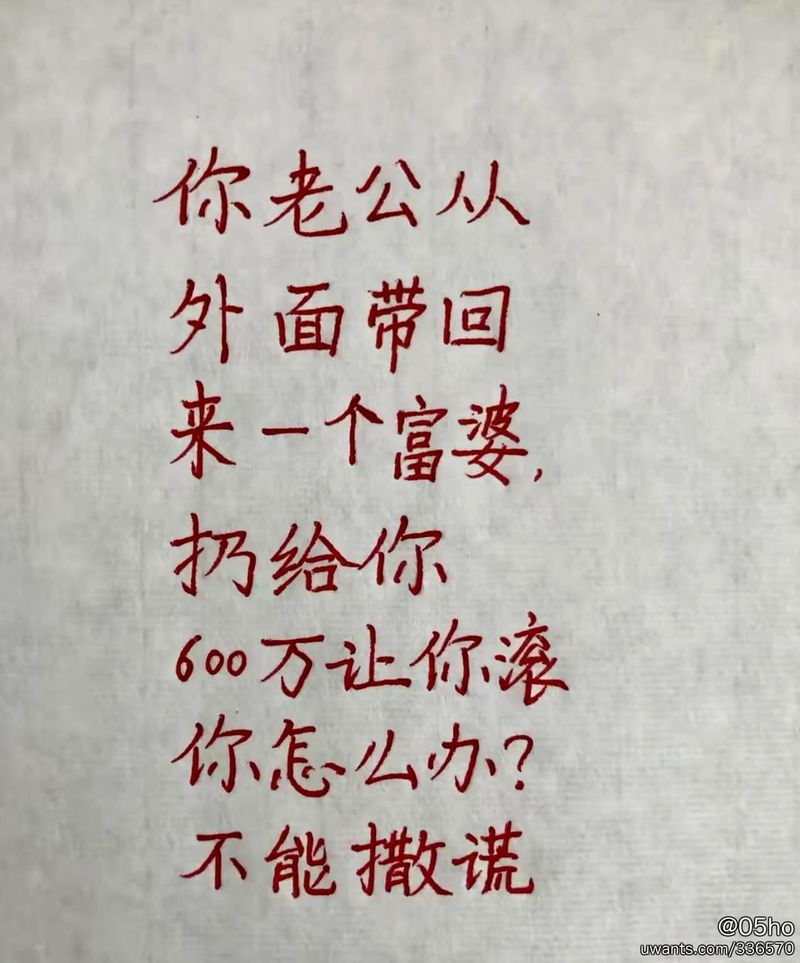 你老公从
外面带回
来一个富婆,
扔给你
600万让你滚
你怎么办?
不能撒谎
@05ho
uwants.com/336570